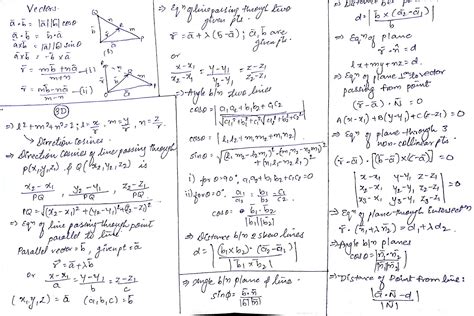 Vectors.
a⃗·b⃗ = |a⃗||b⃗|cosθ
a⃗×b⃗ = |a⃗||b⃗|sinθ
r⃗ = (mb⃗+na⃗)/(m+n) —(i)
r⃗ = (mb⃗-na⃗)/(m-n) —(ii)
3D
⇒ Direction Cosines.
⇒ Direction cosines of line passing through
P(x₁,y₁,z₁) & Q(x₂,y₂,z₂) is
(x₂-x₁)/PQ, (y₂-y₁)/PQ, (z₂-z₁)/PQ
PQ = √((x₂-x₁)²+(y₂-y₁)²+(z₂-z₁)²)
⇒ Eqⁿ of line passing through point
parallel to line.
Parallel vector = b⃗, given pt = a⃗
r⃗ = a⃗+λb⃗
or (x-x₁)/a = (y-y₁)/b = (z-z₁)/c
(x₁,y₁,z₁) = a⃗ (a,b,c) = b⃗
⇒ Eqⁿ of line passing through two
given pts.
r⃗ = a⃗+λ(b⃗-a⃗); a⃗,b⃗ are
given pts.
or
(x-x₁)/(x₂-x₁) = (y-y₁)/(y₂-y₁) = (z-z₁)/(z₂-z₁)
⇒ Angle b/n two lines
cosθ = |(a₁a₂+b₁b₂+c₁c₂)/(√(a₁²+b₁²+c₁²) √(a₂²+b₂²+c₂²))|
cosθ = |l₁l₂+m₁m₂+n₁n₂|
i) for θ=90°, a₁a₂+b₁b₂+c₁c₂=0
ii) for θ=0°, a₁/a₂ = b₁/b₂ = c₁/c₂
cosθ = (b⃗₁·b⃗₂)/(|b⃗₁||b⃗₂|)
⇒ Distance b/n 2 skew lines
d = |((b⃗₁×b⃗₂)·(a⃗₂-a⃗₁))/|b⃗₁×b⃗₂||
⇒ Angle b/n plane & line.
sinφ = (b⃗·n⃗)/(|b⃗||n⃗|)
d = |(b⃗×(a⃗₂-a⃗₁))/|b⃗||
⇒ Eqⁿ of plane
r⃗·n̂ = d
lx+my+nz = d
⇒ Eqⁿ of plane ⊥ to vector
passing from point
(r⃗-a⃗)·N⃗ = 0
A(x-x₁)+B(y-y₁)+C(z-z₁)=0
⇒ Eqⁿ of plane through 3
non-collinear pts.
(r⃗-a⃗)·[(b⃗-a⃗)×(c⃗-a⃗)]=0
⇒ Eqⁿ of plane through Intersection
r⃗·(n⃗₁+λn⃗₂) = d₁+λd₂
⇒ Angle b/n planes
cosθ = |(n⃗₁·n⃗₂)/(|n⃗₁||n⃗₂|)|
⇒ Distance of Point from line:
|a⃗·N⃗-d|/|N⃗|